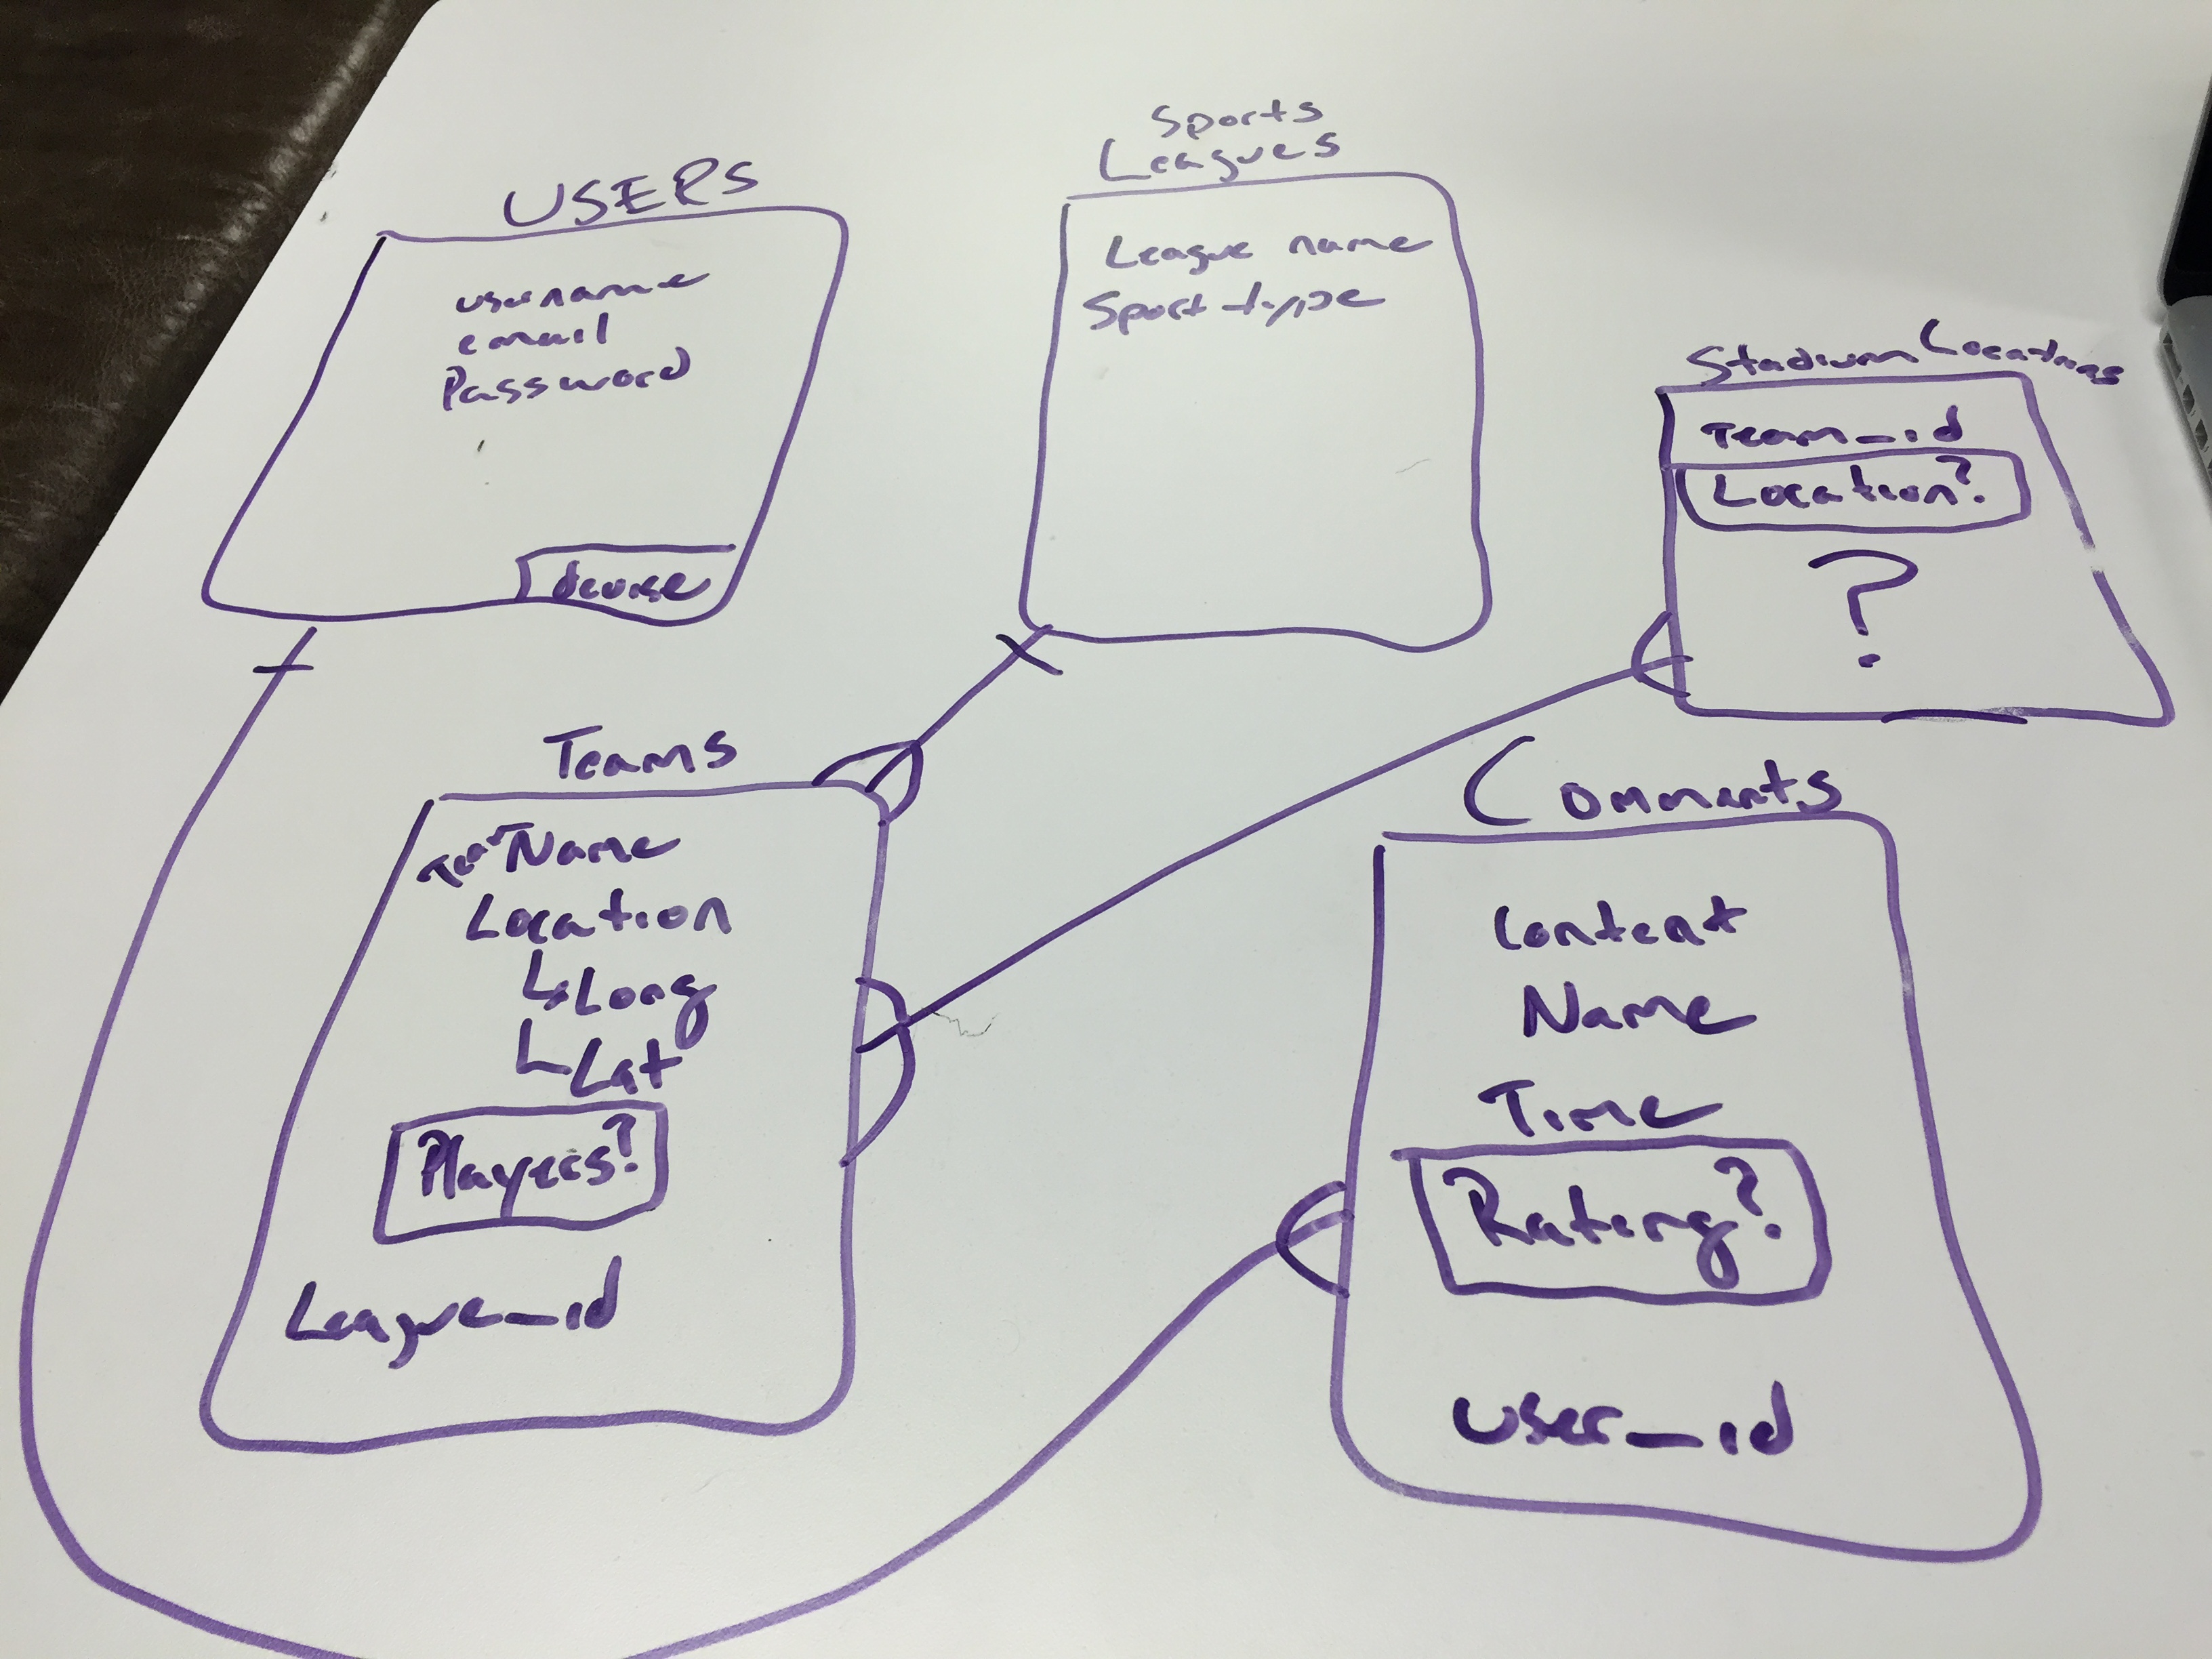 USERS
username
email
Password
devise
Sports
Leagues
League name
Sport type
Stadium Locations
Team_id
Location?
?
Teams
Name
Location
Long
Lat
Players?
League_id
Comments
Content
Name
Time
Rating?
user_id